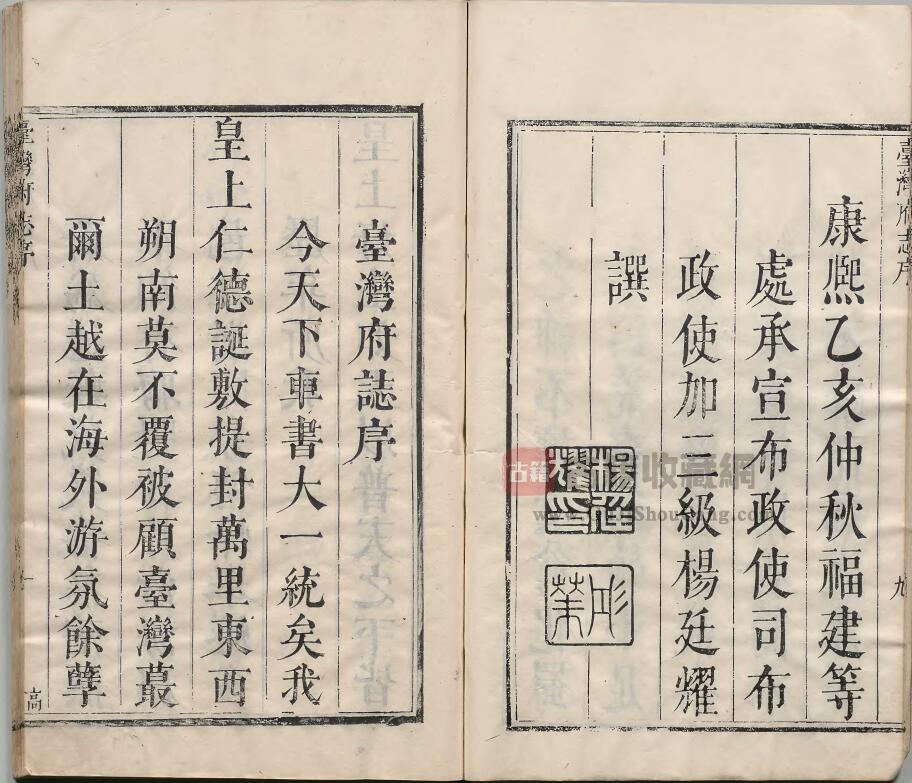 臺灣府志序
康熙乙亥仲秋福建等
處承宣布政使司布
政使加三級楊廷耀
譔
九
臺灣府誌序
今天下車書大一統矣我
皇上仁德誕敷提封萬里東西
朔南莫不覆被顧臺灣蕞
爾土越在海外游氛餘孽
臺灣府志序
一
高
古籍收藏網